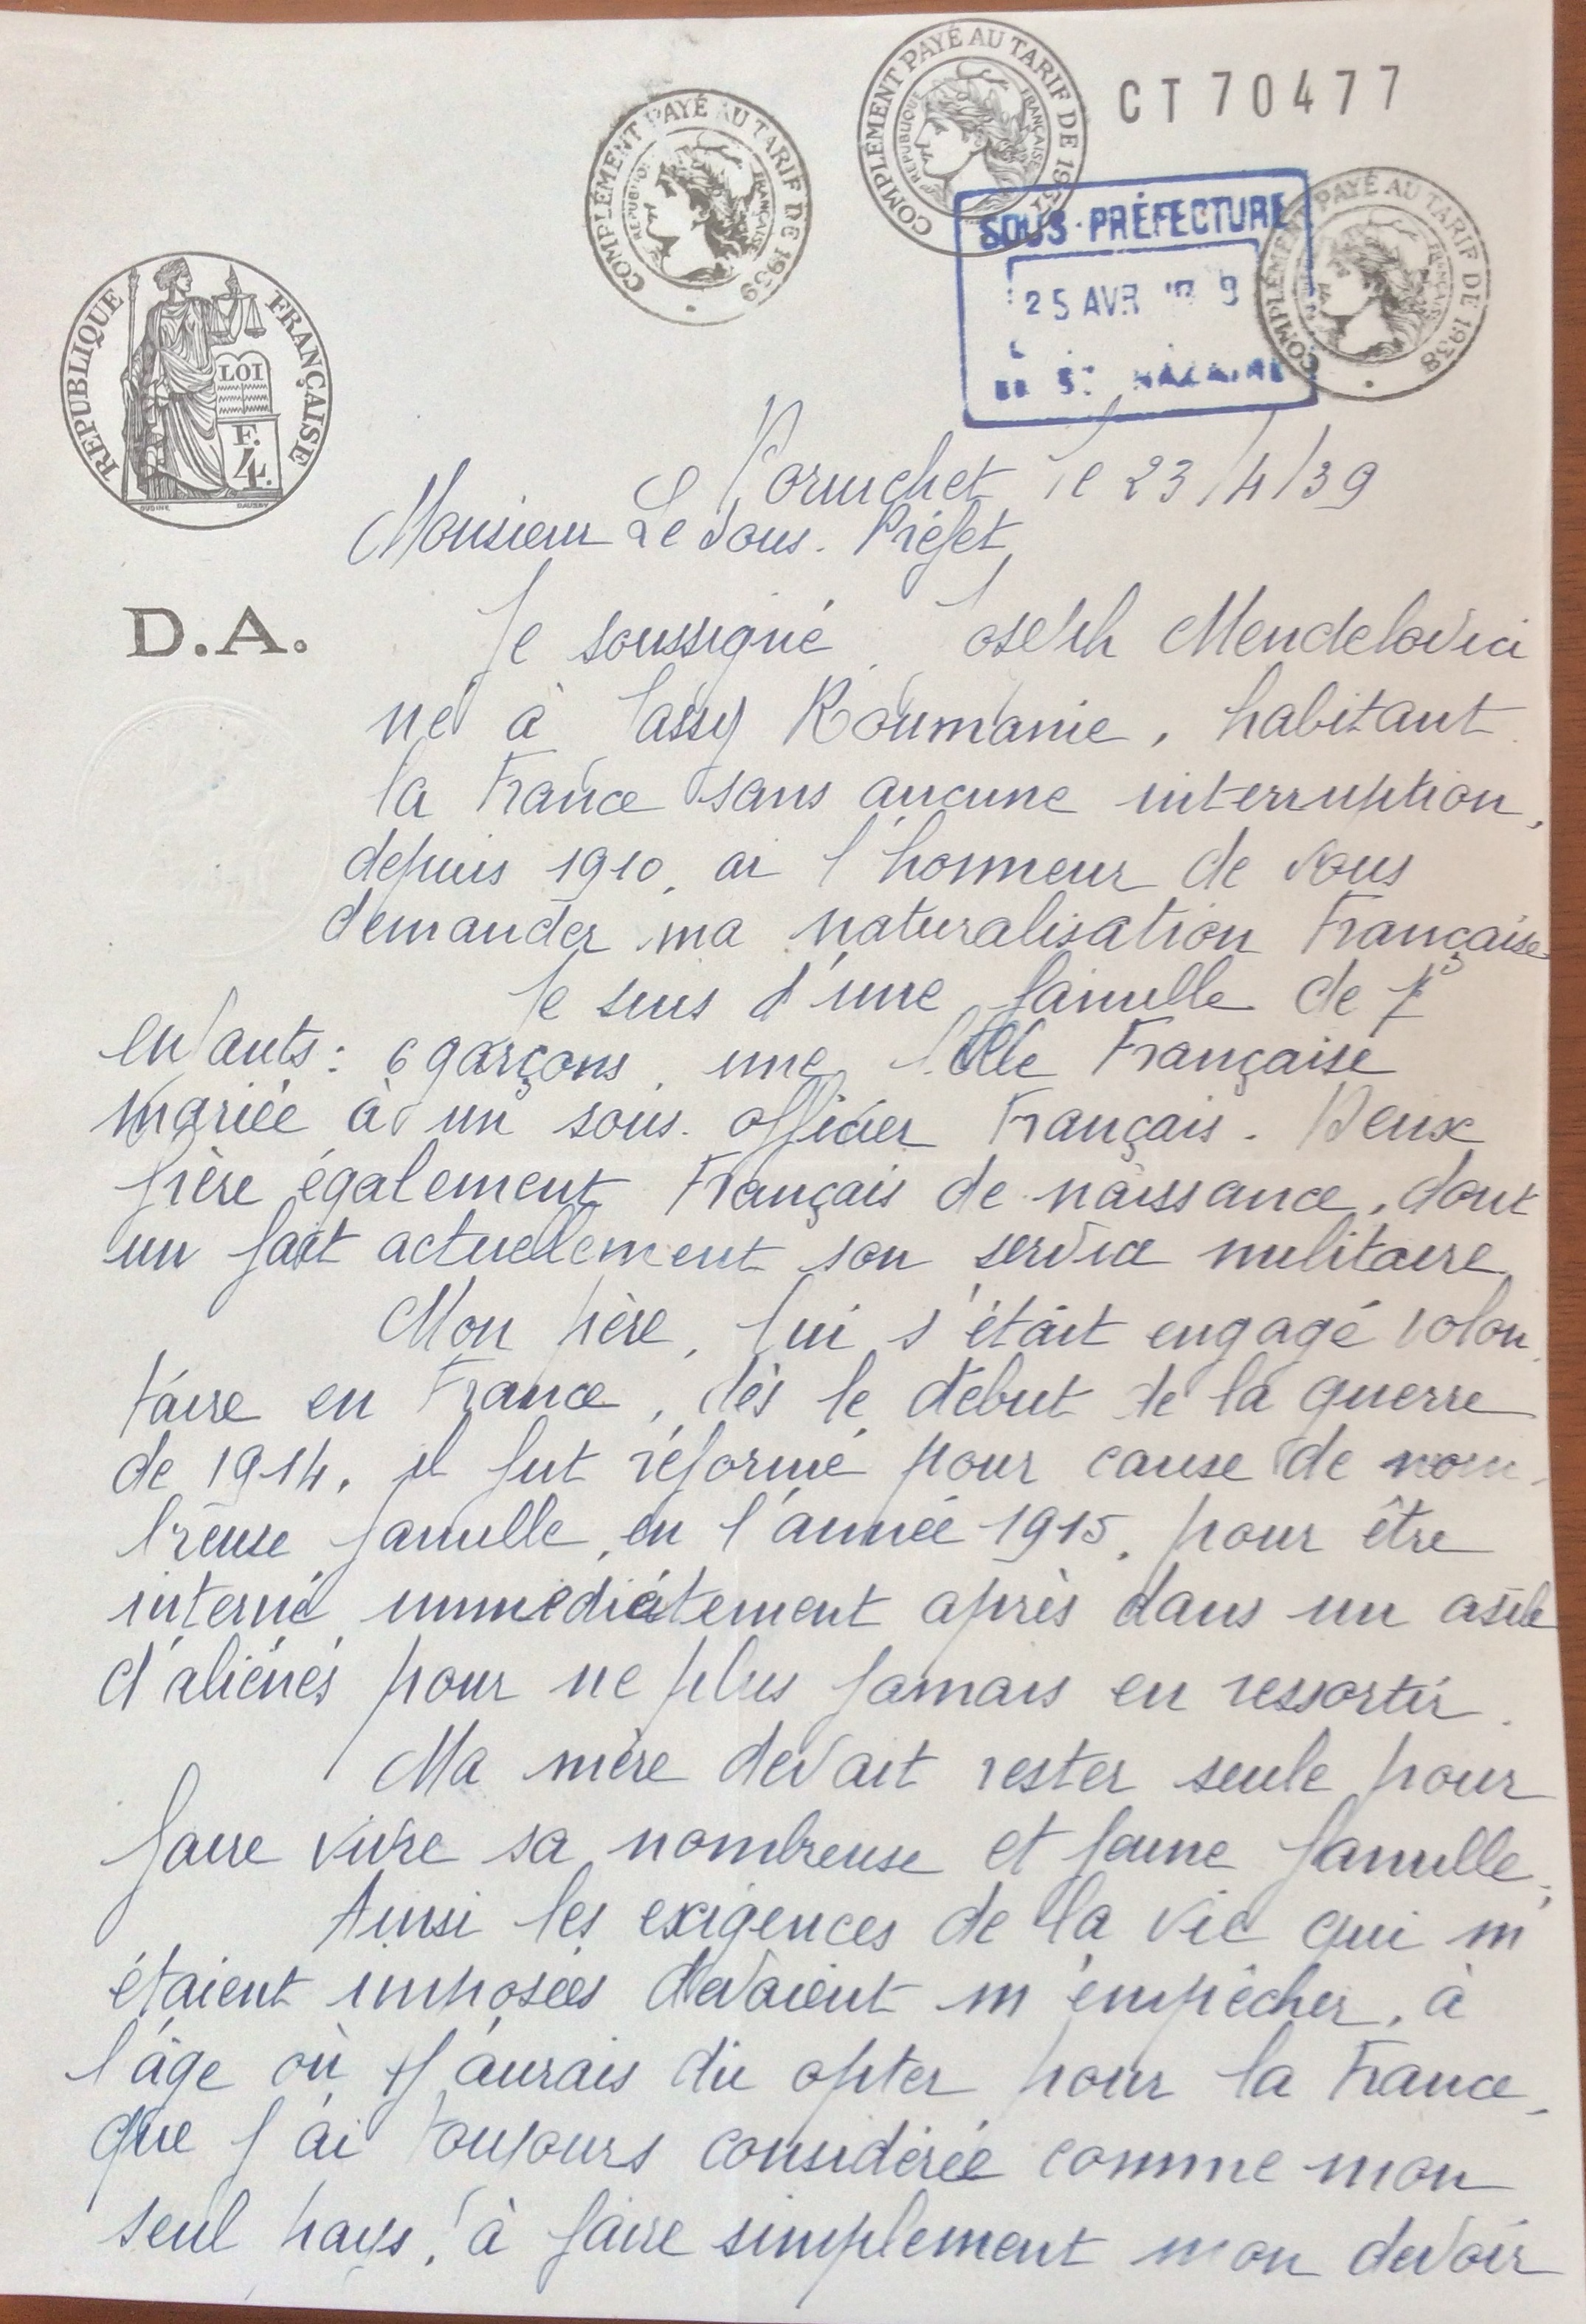 COMPLÉMENT PAYÉ AU TARIF DE 1939
RÉPUBLIQUE FRANÇAISE
COMPLÉMENT PAYÉ AU TARIF DE 1937
RÉPUBLIQUE FRANÇAISE
CT 70477
COMPLÉMENT PAYÉ AU TARIF DE 1938
FRANÇAISE
SOUS-PRÉFECTURE
25 AVR
DE ST NAZAIRE
REPUBLIQUE FRANÇAISE
LOI
F.
4.
OUDINE
D.A.
Le Pornichet le 23/4/39
Monsieur Le Sous-Préfet
Je soussigné Joseph Mendelovici
né à Jassy Roumanie, habitant
la France sans aucune interruption,
depuis 1910, ai l'honneur de vous
demander ma naturalisation Française
Je suis d'une famille de 7
enfants : 6 garçons, une fille Française
mariée à un sous-officier Français. Deux
frère également Français de naissance, dont
un fait actuellement son service militaire
Mon père, lui s'était engagé volon-
taire en France, dès le début de la guerre
de 1914, il fut réformé pour cause de nom-
breuse famille, en l'année 1915, pour être
interné immédiatement après dans un asile
d'aliénés pour ne plus jamais en ressortir.
Ma mère devait rester seule pour
faire vivre sa nombreuse et jeune famille;
Ainsi les exigences de la vie qui m'
étaient imposées devaient m'empêcher, à
l'âge où j'aurais dû opter pour la France,
que j'ai toujours considérée comme mon
seul pays, à faire simplement mon devoir